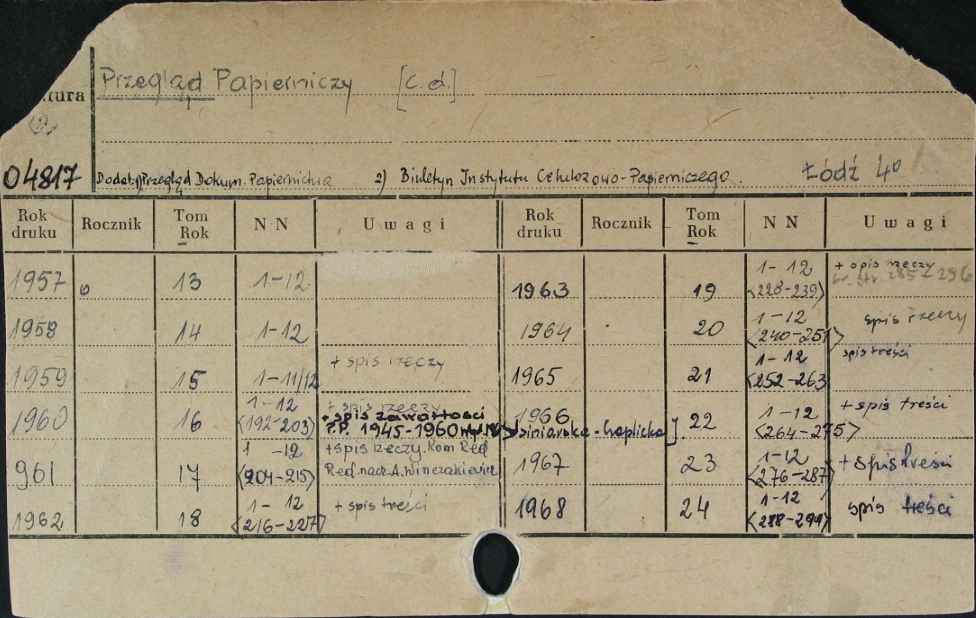 Przegląd Papierniczy [c.d.]
tura
04817
Dodat. 1) Przegląd Dokum. Papiernictwa 2) Biuletyn Instytutu Celulozowo-Papierniczego. Łódź 40
Rok druku Rocznik Tom Rok NN Uwagi Rok druku Rocznik Tom Rok NN Uwagi
1957 13 1-12
1958 14 1-12
1959 15 1-11/12 + spis rzeczy
1960 16 1-12 <192-203> + spis rzeczy
+ spis zawartości
P.P. 1945-1960
961 17 1-12 <204-215> + spis rzeczy. Kom Red
Red. nacz. A. Winczakiewicz
1962 18 1-12 <216-227> + spis treści
1963 19 1-12 <228-239> + spis rzeczy
1964 20 1-12 <240-251> spis rzeczy
1965 21 1-12 <252-263 spis treści
1966 22 1-12 <264-275> + spis treści
1967 23 1-12 <276-287> + spis treści
1968 24 1-12 <288-299> spis treści